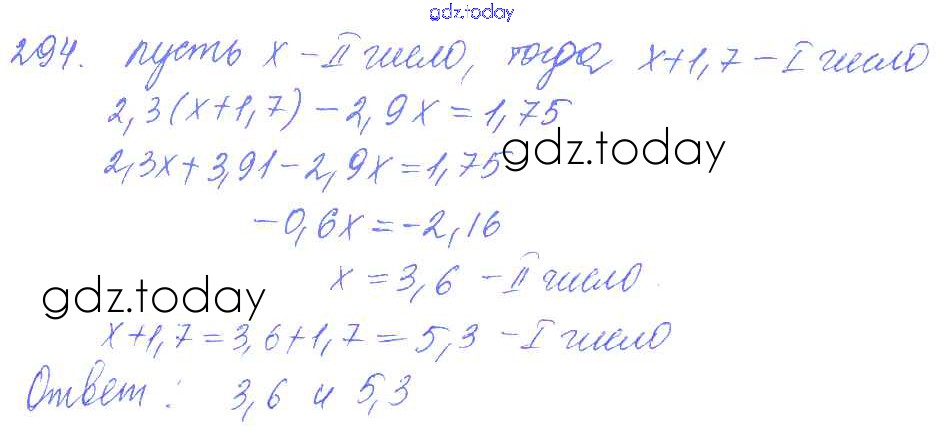 gdz.today
294. пусть x – II число, тогда x+1,7 – I число
2,3(x+1,7) – 2,9x = 1,75
gdz.today
2,3x + 3,91 – 2,9x = 1,75
–0,6x = –2,16
x = 3,6 – II число
gdz.today
x+1,7 = 3,6+1,7 = 5,3 – I число
Ответ: 3,6 и 5,3